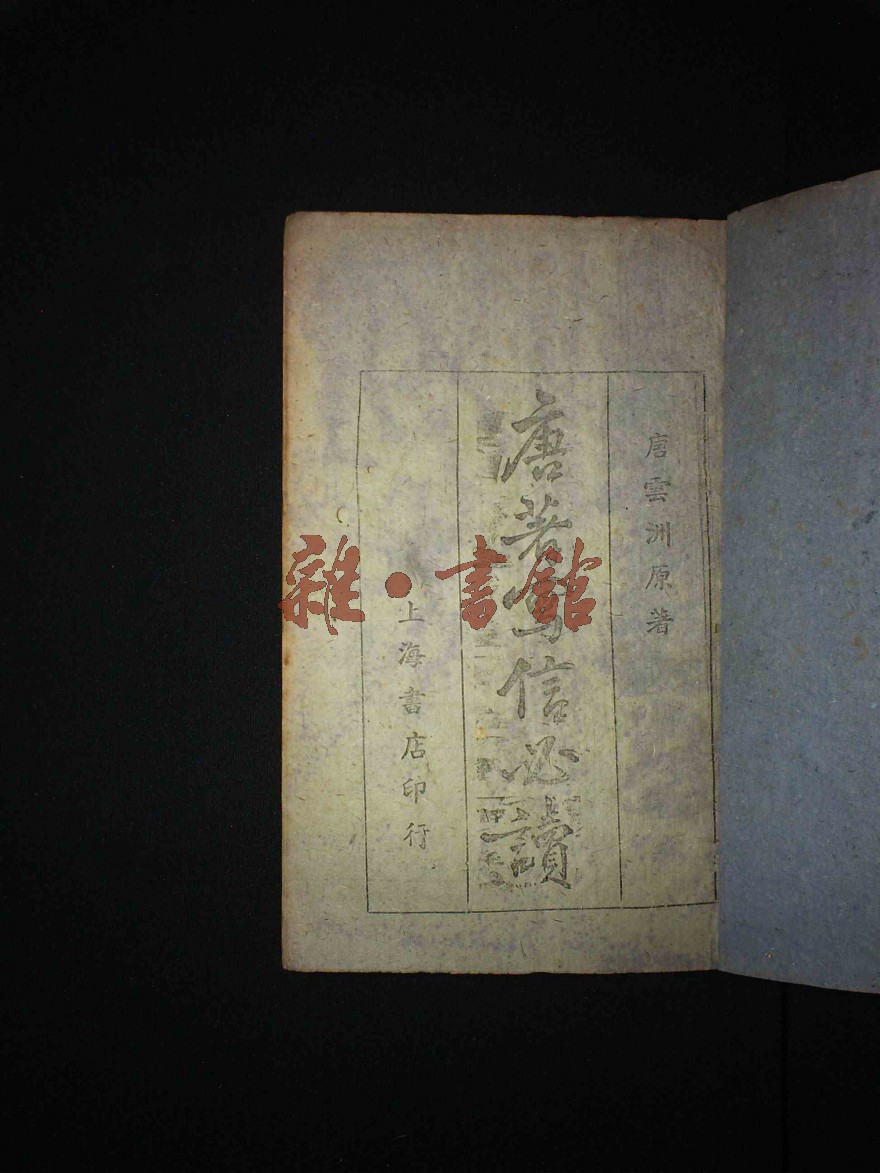 唐雲洲原著
唐著寫信必讀
上海書店印行
雜·書館